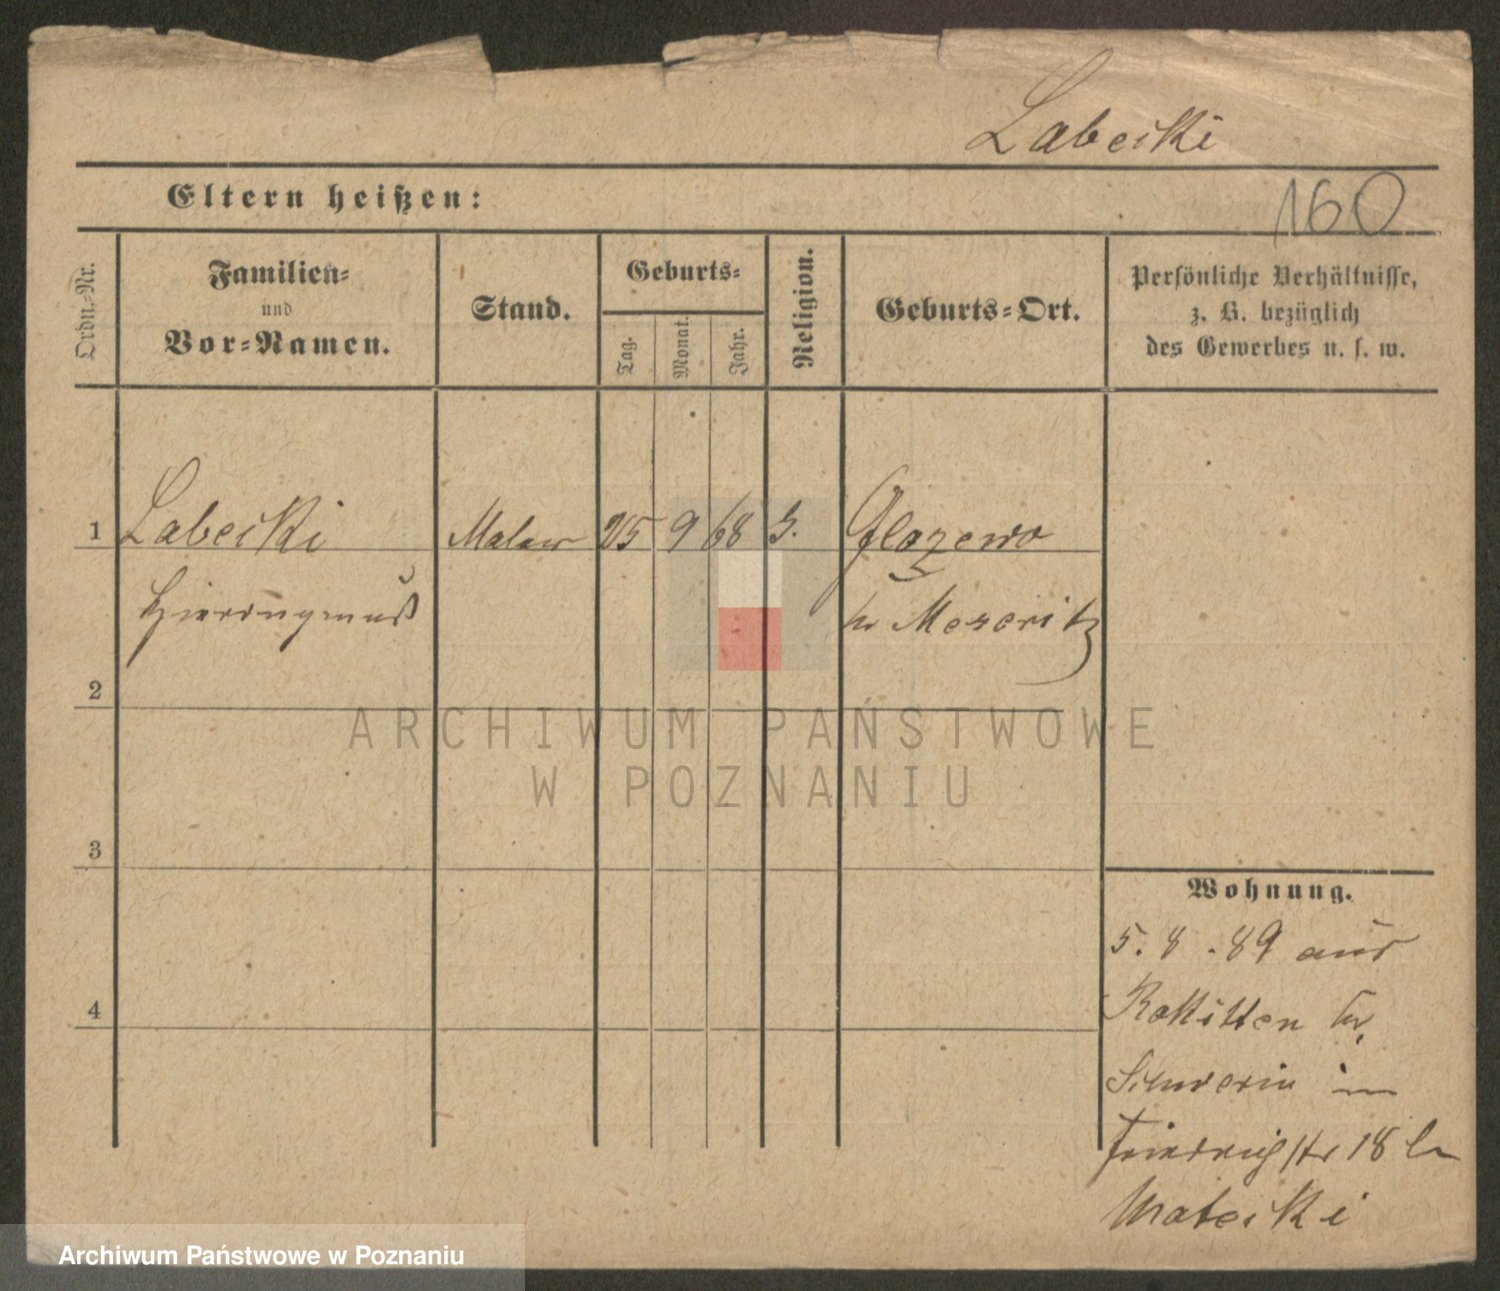 Labecki
Eltern heißen:
160
Ordn.-Nr.
Familien-
und
Vor-Namen.
Stand.
Geburts-
Tag.
Monat.
Jahr.
Religion.
Geburts-Ort.
Persönliche Verhältnisse,
z. B. bezüglich
des Gewerbes u. s. w.
1 Labecki Maler 25 9 68 Glazewo
Hieronymus
Meseritz
2
3
4
Wohnung.
5. 8. 89 aus
Rokitten Kr.
Schwerin in
Friedrichstr 18 b
Matecki
ARCHIWUM PAŃSTWOWE
W POZNANIU
Archiwum Państwowe w Poznaniu